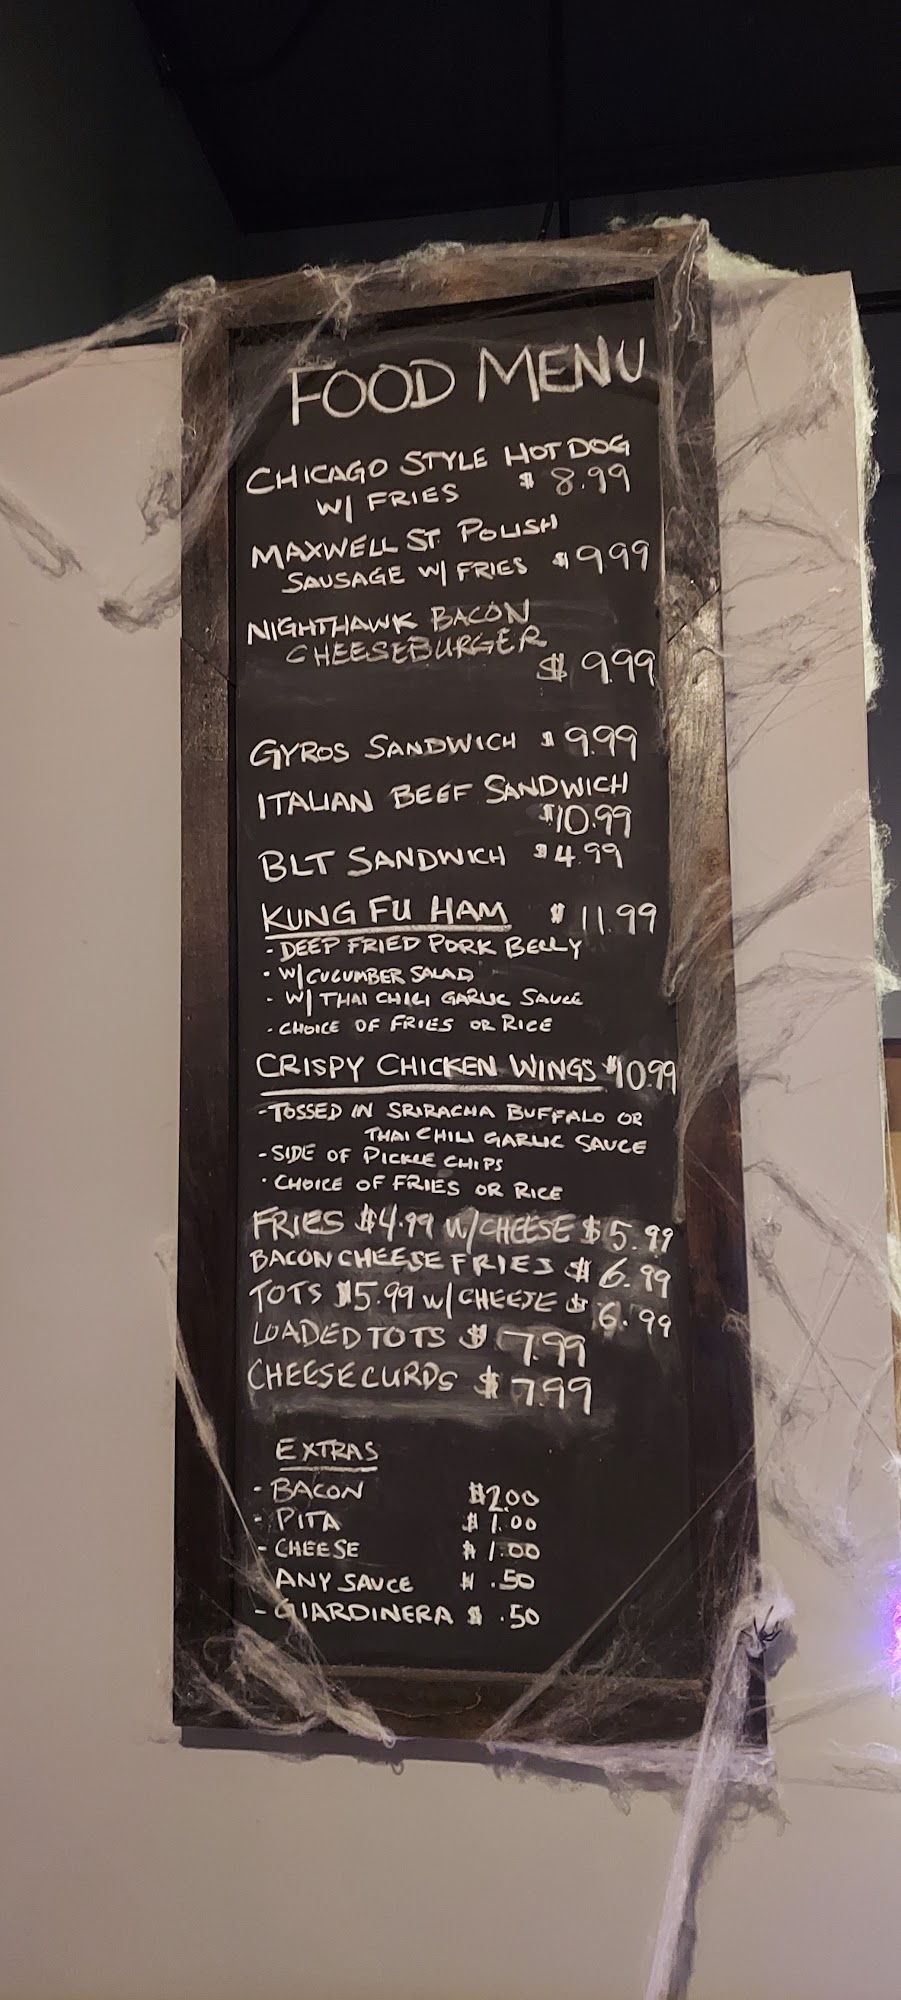 FOOD MENU
CHICAGO STYLE HOT DOG
W/ FRIES $ 8.99
MAXWELL ST POLISH
SAUSAGE W/ FRIES $9.99
NIGHTHAWK BACON
CHEESEBURGER
$ 9.99
GYROS SANDWICH $ 9.99
ITALIAN BEEF SANDWICH
$10.99
BLT SANDWICH $4.99
KUNG FU HAM $ 11.99
- DEEP FRIED PORK BELLY
- W/ CUCUMBER SALAD
- W/ THAI CHILI GARLIC SAUCE
- CHOICE OF FRIES OR RICE
CRISPY CHICKEN WINGS $10.99
- TOSSED IN SRIRACHA BUFFALO OR
THAI CHILI GARLIC SAUCE
- SIDE OF PICKLE CHIPS
- CHOICE OF FRIES OR RICE
FRIES $4.99 W/ CHEESE $5.99
BACON CHEESE FRIES $6.99
TOTS $5.99 W/ CHEESE $6.99
LOADED TOTS $ 7.99
CHEESE CURDS $ 7.99
EXTRAS
- BACON $2.00
- PITA $1.00
- CHEESE $1.00
ANY SAUCE $ .50
- GIARDINERA $ .50